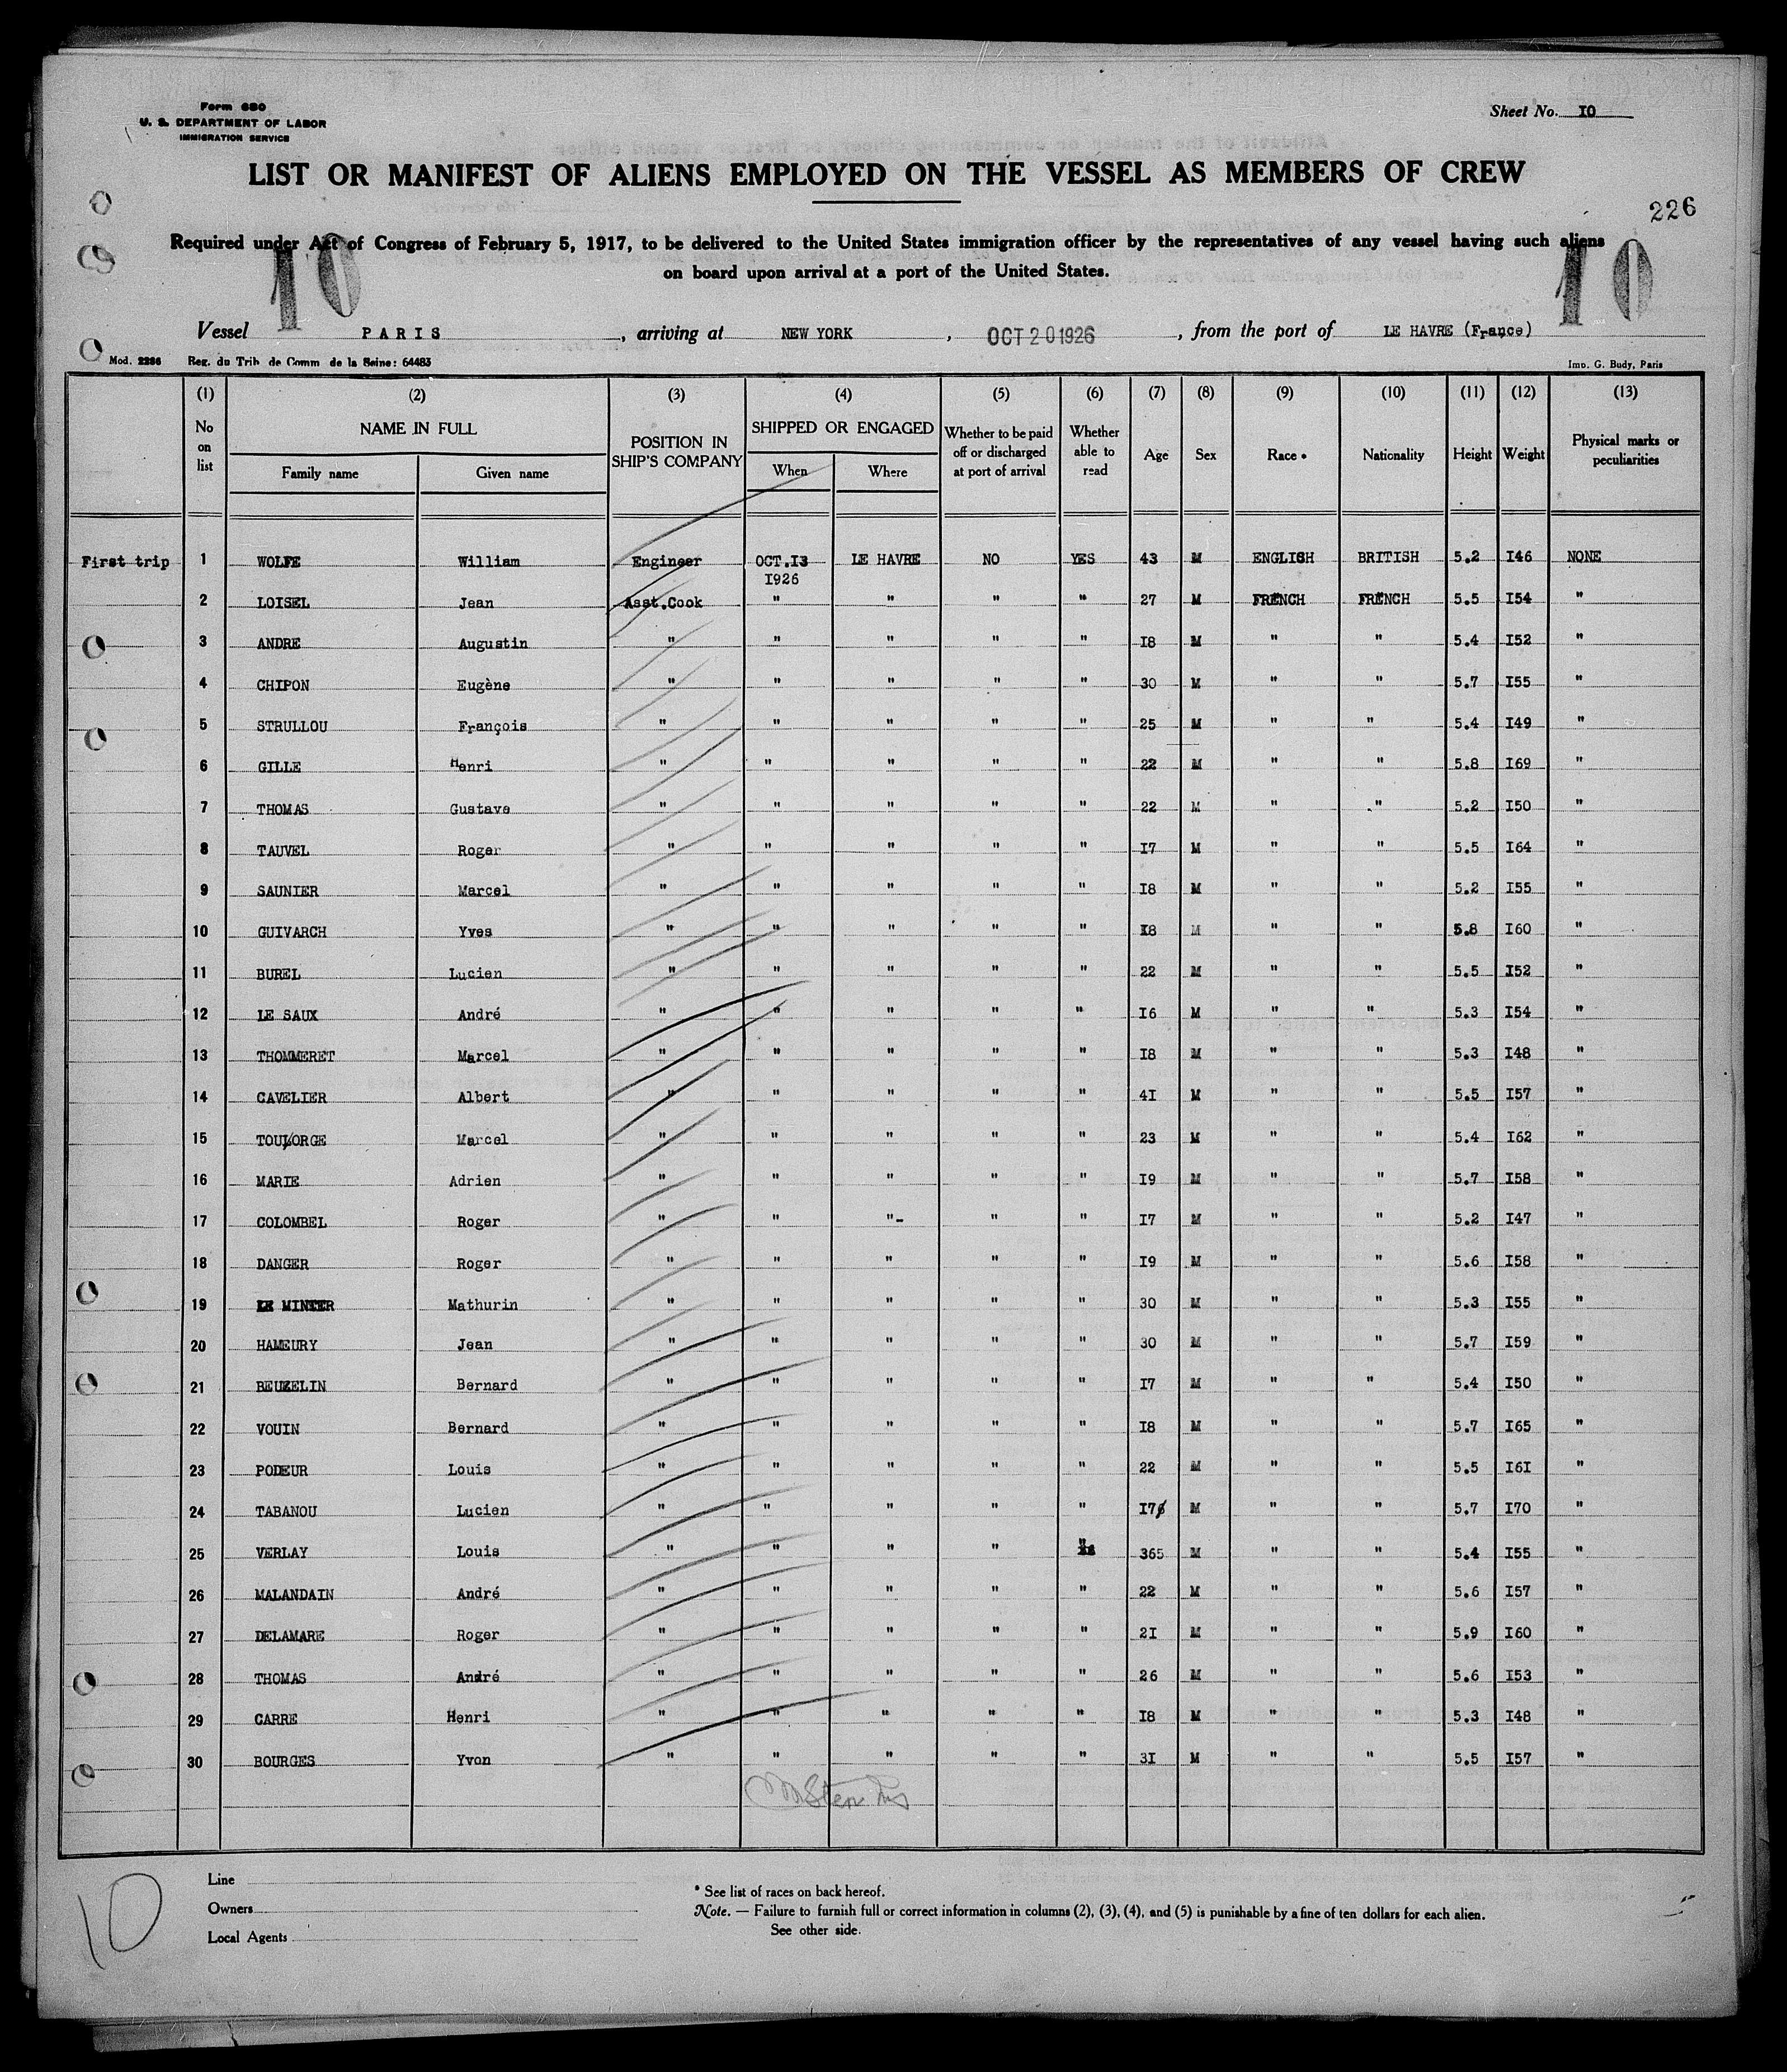 Form 680
U. S. DEPARTMENT OF LABOR
IMMIGRATION SERVICE
Sheet No. I0
LIST OR MANIFEST OF ALIENS EMPLOYED ON THE VESSEL AS MEMBERS OF CREW
226
Required under Act of Congress of February 5, 1917, to be delivered to the United States immigration officer by the representatives of any vessel having such aliens
on board upon arrival at a port of the United States.
10 10
Vessel PARIS, arriving at NEW YORK, OCT 20 1926, from the port of LE HAVRE (France)
Mod. 2286 Reg. du Trib de Comm de la Seine: 64483 Imp. G. Budy, Paris
(1) (2) (3) (4) (5) (6) (7) (8) (9) (10) (11) (12) (13)
No on list NAME IN FULL POSITION IN SHIP'S COMPANY SHIPPED OR ENGAGED Whether to be paid off or discharged at port of arrival Whether able to read Age Sex Race * Nationality Height Weight Physical marks or peculiarities
Family name Given name When Where
First trip 1 WOLFE William Engineer OCT.I3 LE HAVRE NO YES 43 M ENGLISH BRITISH 5.2 I46 NONE
I926
2 LOISEL Jean Asst.Cook " " " " 27 M FRENCH FRENCH 5.5 I54 "
3 ANDRE Augustin " " " " " I8 M " " 5.4 I52 "
4 CHIPON Eugène " " " " " 30 M " " 5.7 I55 "
5 STRULLOU François " " " " " 25 M " " 5.4 I49 "
6 GILLE Henri " " " " " 22 M " " 5.8 I69 "
7 THOMAS Gustave " " " " " 22 M " " 5.2 I50 "
8 TAUVEL Roger " " " " " I7 M " " 5.5 I64 "
9 SAUNIER Marcel " " " " " I8 M " " 5.2 I55 "
10 GUIVARCH Yves " " " " " I8 M " " 5.8 I60 "
11 BUREL Lucien " " " " " 22 M " " 5.5 I52 "
12 LE SAUX André " " " " " I6 M " " 5.3 I54 "
13 THOMMERET Marcel " " " " " I8 M " " 5.3 I48 "
14 CAVELIER Albert " " " " " 4I M " " 5.5 I57 "
15 TOULORGE Marcel " " " " " 23 M " " 5.4 I62 "
16 MARIE Adrien " " " " " I9 M " " 5.7 I58 "
17 COLOMBEL Roger " " "- " " I7 M " " 5.2 I47 "
18 DANGER Roger " " " " " I9 M " " 5.6 I58 "
19 LE MINTER Mathurin " " " " " 30 M " " 5.3 I55 "
20 HAMEURY Jean " " " " " 30 M " " 5.7 I59 "
21 BEUZELIN Bernard " " " " " I7 M " " 5.4 I50 "
22 VOUIN Bernard " " " " " I8 M " " 5.7 I65 "
23 PODEUR Louis " " " " " 22 M " " 5.5 I6I "
24 TABANOU Lucien " " " " " I7 M " " 5.7 I70 "
25 VERLAY Louis " " " " " 365 M " " 5.4 I55 "
26 MALANDAIN André " " " " " 22 M " " 5.6 I57 "
27 DELAMARE Roger " " " " " 2I M " " 5.9 I60 "
28 THOMAS André " " " " " 26 M " " 5.6 I53 "
29 CARRE Henri " " " " " I8 M " " 5.3 I48 "
30 BOURGES Yvon " " " " " 3I M " " 5.5 I57 "
10
Line
Owners
Local Agents
* See list of races on back hereof.
Note. — Failure to furnish full or correct information in columns (2), (3), (4), and (5) is punishable by a fine of ten dollars for each alien.
See other side.